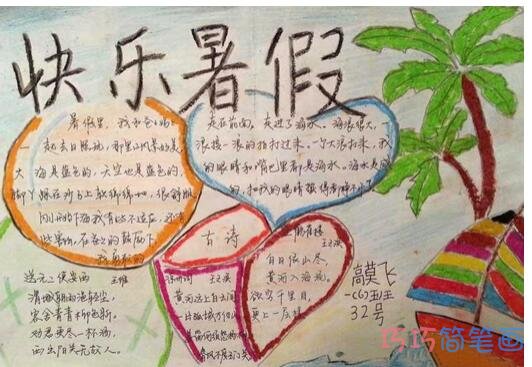 快乐暑假
暑假里，我和爸妈
一起去日照玩，那里的风景好美
大海是蓝色的，天空也是蓝色的，
脚丫踩在沙子上软绵绵地，很舒服
在爸爸的鼓励下，
我勇敢的
走在前面，走进了海水。海浪很大，一
浪接一浪的拍打过来，一个大浪打来，我
的眼睛和嘴巴里都是海水。海水是咸
的，和我的眼睛
古诗
送元二使安西
王维
渭城朝雨浥轻尘，
客舍青青柳色新。
劝君更尽一杯酒，
西出阳关无故人。
凉州词
王之涣
黄河远上白云间
一片孤城万仞山
羌笛何须怨杨柳
春风不度玉门关
登鹳雀楼
王之涣
白日依山尽
黄河入海流。
欲穷千里目，
更上一层楼
高莫飞
一(6)班
32号
巧巧简笔画